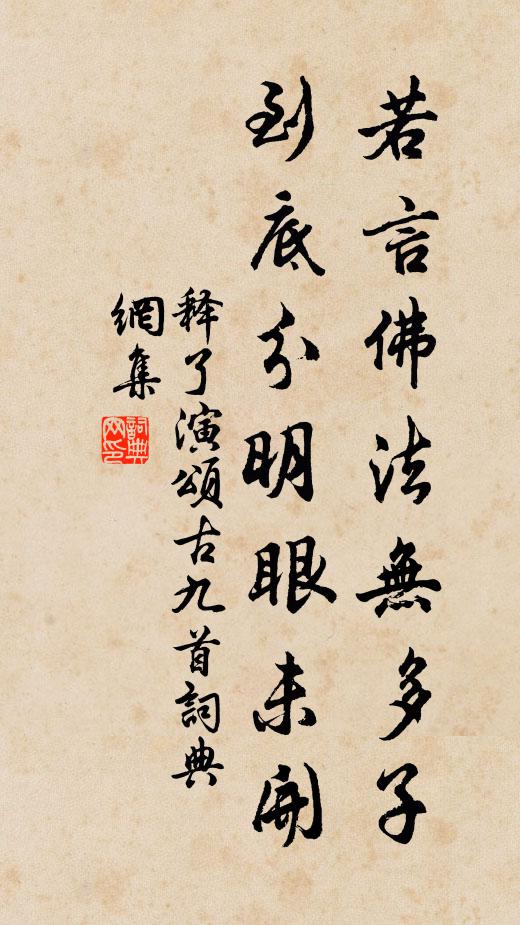 若言佛法無多子
到底分明眼未開
释了演頌古九首詞典
網集
詞典
网印